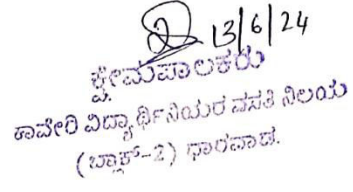 13/6/24
ಕ್ಷೇಮಪಾಲಕರು
ಕಾವೇರಿ ವಿದ್ಯಾರ್ಥಿನಿಯರ ವಸತಿ ನಿಲಯ
(ಬ್ಲಾಕ್-2) ಧಾರವಾಡ.